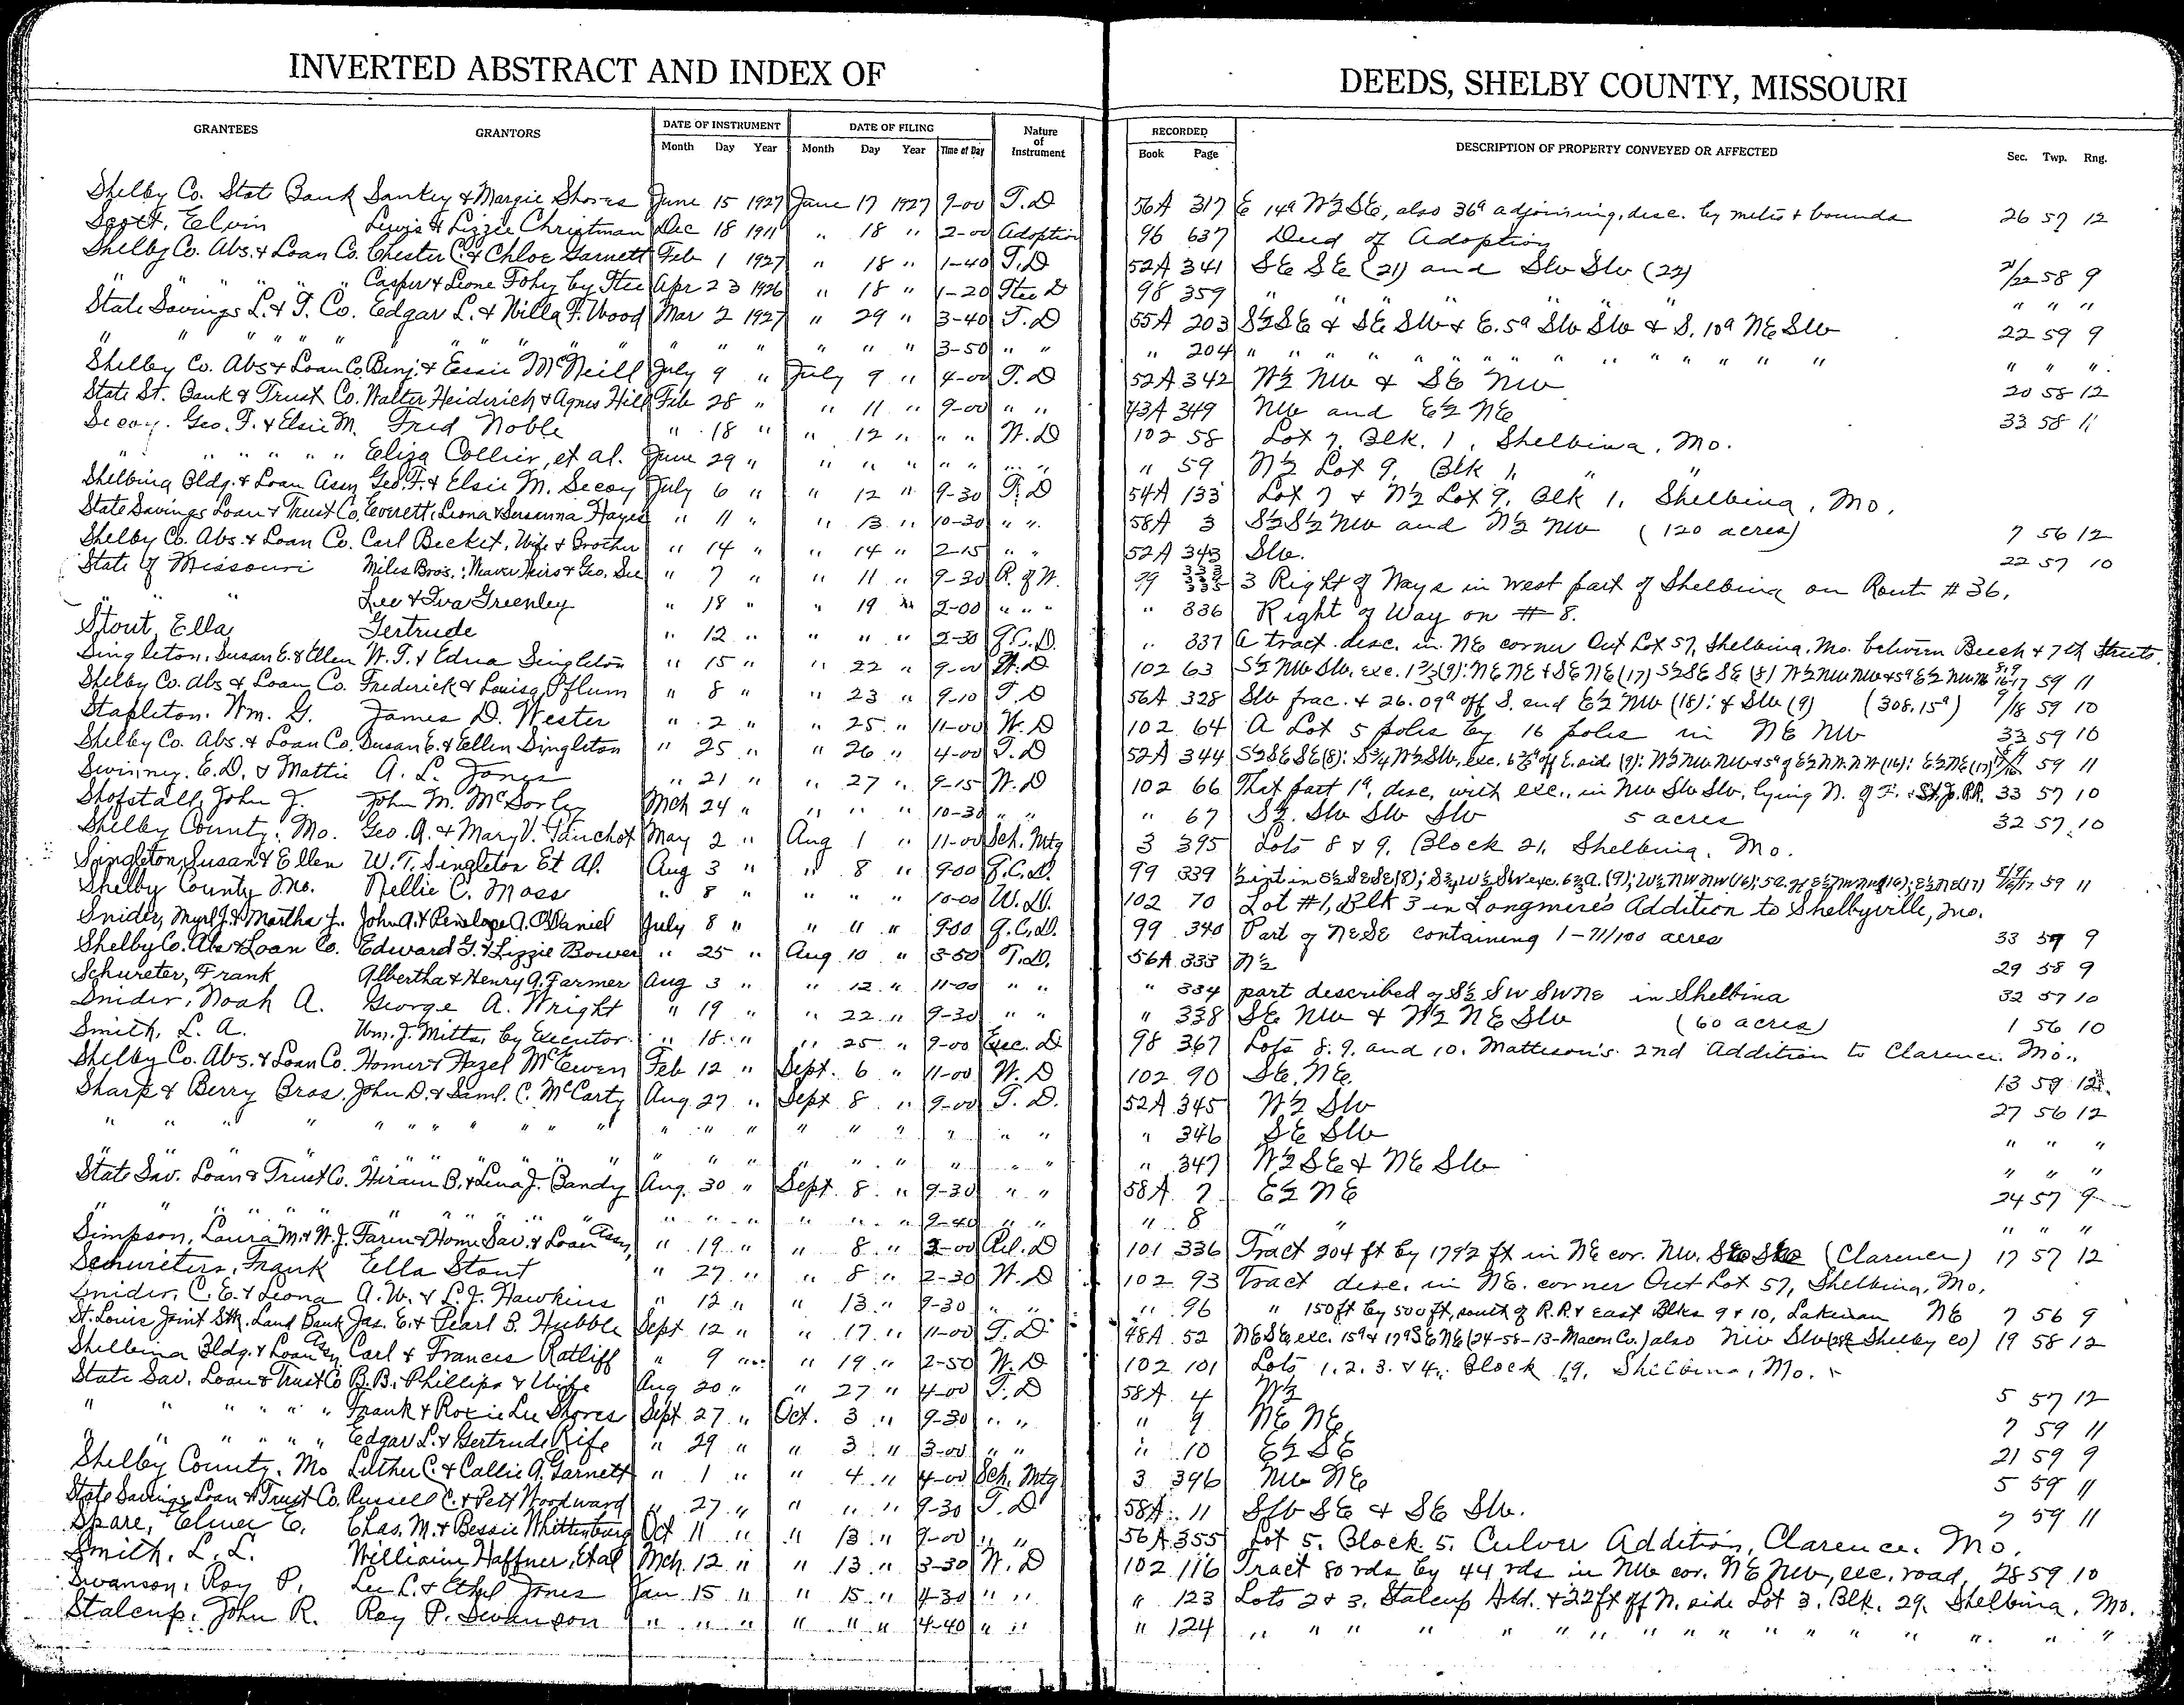 INVERTED ABSTRACT AND INDEX OF DEEDS, SHELBY COUNTY, MISSOURI
GRANTEES GRANTORS DATE OF INSTRUMENT DATE OF FILING Nature of Instrument RECORDED DESCRIPTION OF PROPERTY CONVEYED OR AFFECTED Sec. Twp. Rng.
Month Day Year Month Day Year Time of Day Book Page
Shelby Co. State Bank Sankey & Margie Shores June 15 1927 June 17 1927 9-00 T.D 56A 317 E 14a W½SE, also 36a adjoining, desc. by metes & bounds 26 57 12
Scott, Elvin Lewis & Lizzie Christman Dec 18 1911 " 18 " 2-00 Adoption 96 637 Deed of Adoption
Shelby Co. Abs. & Loan Co. Chester C. & Chloe Garnett Feb 1 1927 " 18 " 1-40 T.D 52A 341 SE SE (21) and SW SW (22) 21/22 58 9
" " " " " Casper & Leone Fohy by Stee Apr 23 1926 " 18 " 1-20 Stee D 98 359 " " " " "
State Savings L. & T. Co. Edgar L. & Willa F. Wood Mar 2 1927 " 29 " 3-40 T.D 55A 203 S½SE & SE SW & E. 5a SW SW & S. 10a NE SW 22 59 9
" " " " " " " " " " " " " " " " 3-50 " " " 204 " " " " " " " " " " " " " " "
Shelby Co. Abs & Loan Co. Benj. & Essie McNeill July 9 " July 9 " 4-00 T.D 52A 342 W½ NW & SE NW 20 58 12
State St. Bank & Trust Co. Walter Heiderich & Agnes Hill Feb 28 " " 11 " 9-00 " " 43A 349 NW and E½ NE 33 58 11
Secoy. Geo. F. & Elsie M. Fred Noble " 18 " " 12 " " " W.D 102 58 Lot 7, Blk. 1, Shelbina, Mo.
" " " " " " Eliza Collier, et al. June 29 " " " " " " " " " 59 N½ Lot 9, Blk 1, " "
Shelbina Bldg. & Loan Assn Geo. F. & Elsie M. Secoy July 6 " " 12 " 9-30 T.D 54A 133 Lot 7 & N½ Lot 9, Blk 1, Shelbina, Mo.
State Savings Loan & Trust Co. Everett, Leona & Susanna Hayes " 11 " " 13 " 10-30 " " 58A 3 S½S½NW and N½ NW (120 acres) 7 56 12
Shelby Co. Abs. & Loan Co. Carl Becket, Wife & Brother " 14 " " 14 " 2-15 " " 52A 343 SW. 22 57 10
State of Missouri Miles Bros.; Maver Heirs & Geo. See " 7 " " 11 " 9-30 R. of W. 99 333 335 3 Right of Ways in west part of Shelbina on Route #36.
" " Lee & Iva Greenley " 18 " " 19 " 2-00 " " " " 336 Right of Way on #8.
Stout, Ella Gertrude " 12 " " " " 2-30 Q.C.D. " 337 A tract desc. in NE corner Out Lot 57, Shelbina, Mo. between Beech & 7th Streets.
Singleton, Susan E. & Ellen W.T. & Edna Singleton " 15 " " 22 " 9-00 W.D 102 63 S½ NW SW, exc. 1⅔ (9): NE NE & SE NE (17) S½SE SE (8) W½NWNW & 5a E½ NWNW 8,9 16-17 59 11
Shelby Co. Abs & Loan Co. Frederick & Louisa Pflum " 8 " " 23 " 9-10 T.D 56A 328 SW frac. & 26.09a off S. end E½ NW (18): & SW (9) (308.15a) 9/18 59 10
Stapleton, Wm. G. James D. Wester " 2 " " 25 " 11-00 W.D 102 64 A Lot 5 poles by 16 poles in NE NW 33 59 10
Shelby Co. Abs. & Loan Co. Susan E. & Ellen Singleton " 25 " " 26 " 4-00 T.D 52A 344 S½SE SE (8): S¾ W½SW, exc. 6⅔a off E. side (9): W½ NW NW & 5a of E½ N.W. N.W (16): E½NE (17) 59 11
Swinney, E.D. & Mattie A. L. Jones " 21 " " 27 " 9-15 W.D 102 66 That part 1a, desc. with exc., in NW SW SW, lying N. of H. & St. J. RR. 33 57 10
Shofstall, John J. John M. McSorley Mch 24 " " " " 10-30 " " " 67 S½ SW SW SW 5 acres 32 57 10
Shelby County, Mo. Geo. A. & Mary V. Tanchot May 2 " Aug 1 " 11-00 Sch. Mtg 3 395 Lots 8 & 9, Block 21, Shelbina, Mo.
Singleton, Susan & Ellen W.T. Singleton Et Al. Aug 3 " " 8 " 9-00 Q.C.D. 99 339 ½ int in S½SESE (8); S¾W½SW exc. 6⅔A. (9); W½NWNW (16); 5a. of E½NWNW (16); E½NE (17) 59 11
Shelby County Mo. Nellie C. Moss " 8 " " " " 10-00 W.D. 102 70 Lot #1, Blk 3 in Longmire's Addition to Shelbyville, Mo.
Snider, Myrl J. & Martha J. John A. & Penelope A. O'Daniel July 8 " " 11 " 9-00 Q.C.D. 99 340 Part of NESE containing 1-71/100 acres 33 59 9
Shelby Co. Abs & Loan Co. Edward G. & Lizzie Bower " 25 " Aug 10 " 3-50 T.D. 56A 333 N½ 29 58 9
Schureter, Frank Albertha & Henry A. Farmer Aug 3 " " 12 " 11-00 " " " 334 part described of S½ SW SWNE in Shelbina 32 57 10
Snider, Noah A. George A. Wright " 19 " " 22 " 9-30 " " " 338 SE NW & W½ NE SW (60 acres) 1 56 10
Smith, L. A. Wm. J. Mitts, by Executor " 18 " " 25 " 9-00 Exec. D 98 367 Lots 8, 9, and 10, Matteson's 2nd Addition to Clarence, Mo.
Shelby Co. Abs. & Loan Co. Homer & Hazel McEwen Feb 12 " Sept. 6 " 11-00 W.D 102 90 SE NE. 13 59 12
Sharp & Berry Bros. John D. & Saml. C. McCarty Aug 27 " Sept 8 " 9-00 T.D. 52A 345 W½ SW 27 56 12
" " " " " " " " " " " " " " " " " " " " " 346 SE SW " " "
" " " " " " " " " " " " " " " " " " " " " 347 W½SE & NE SW " " "
State Sav. Loan & Trust Co. Hiram B. & Lena J. Bandy Aug. 30 " Sept. 8 " 9-30 " " 58A 7 E½ NE 24 57 9
" " " " " " " " " " " " " " " 9-40 " " " 8 " " " " "
Simpson, Laura M. & W.J. Farm & Home Sav. & Loan Assn, " 19 " " 8 " 2-00 Rel. D 101 336 Tract 204 ft by 179½ ft in NE cor. NW. (Clarence) 17 57 12
Schureters, Frank Ella Stout " 27 " " 8 " 2-30 W.D 102 93 Tract desc. in NE. corner Out Lot 57, Shelbina, Mo.
Snider, C. E. & Leona A. W. & L. J. Hawkins " 12 " " 13 " 9-30 " " " 96 " 150ft by 500ft, south of R.R & east Blks 9 & 10, Lakenan NE 7 56 9
St. Louis Joint Stk. Land Bank Jas. E. & Pearl B. Hubble Sept 12 " " 17 " 11-00 T.D 48A 52 NESE exc. 15a & 17a SENE (24-58-13-Macon Co.) also NW SW (Shelby Co) 19 58 12
Shelbina Bldg. & Loan Assn Carl & Frances Ratliff " 9 " " 19 " 2-50 W.D 102 101 Lots 1, 2, 3, & 4, Block 19, Shelbina, Mo.
State Sav. Loan & Trust Co B.B. Phillips & Wife Aug 20 " " 27 " 4-00 T.D 58A 4 W½ 5 57 12
" " " " " " Frank & Roxie Lee Shores Sept 27 " Oct. 3 " 9-30 " " " 9 NE NE 7 59 11
" " " " " " Edgar L. & Gertrude Rife " 29 " " 3 " 3-00 " " " 10 E½ SE 21 59 9
Shelby County, Mo Luther C. & Callie A. Garnett " 1 " " 4 " 4-00 Sch. Mtg 3 396 NW NE 5 59 11
State Savings Loan & Trust Co. Russell C. & Pett Woodward " 27 " " " " 9-30 T.D 58A 11 SW SE & SE SW. 7 59 11
Spare, Elmer E. Chas. M. & Bessie Whittenburg Oct 11 " " 13 " 9-00 " " 56A 355 Lot 5, Block 5, Culver Addition, Clarence, Mo.
Smith, L. L. William Haffner, Etal Mch. 12 " " 13 " 3-30 W.D 102 116 Tract 80 rds by 44 rds in NW cor. NE NW, exc. road, 28 59 10
Swanson, Roy P. Lee L. & Ethel Jones Jan 15 " " 15 " 4-30 " " " 123 Lots 2 & 3, Stalcup Add. & 22ft off N. side Lot 3, Blk. 29, Shelbina, Mo.
Stalcup, John R. Roy P. Swanson " " " " " " 4-40 " " " 124 " " " " " " " " " " " " " " "